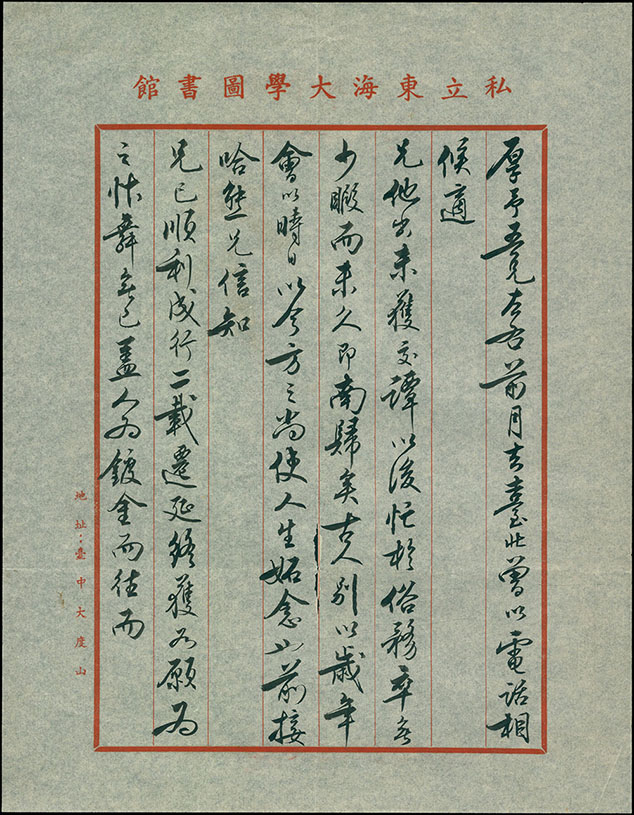 私立東海大學圖書館
厚予吾兄左右前月去臺北曾以電話相
候適
兄他出未獲交譚以後忙於俗務卒無
少暇而未久即南歸矣古人別以歲年
會以時日以今方之尚使人生妬念日前接
哈熊兄信知
兄已順利成行二載遷延終獲如願為
之怵舞無已蓋人为鍍金而往而
地址:臺中大度山